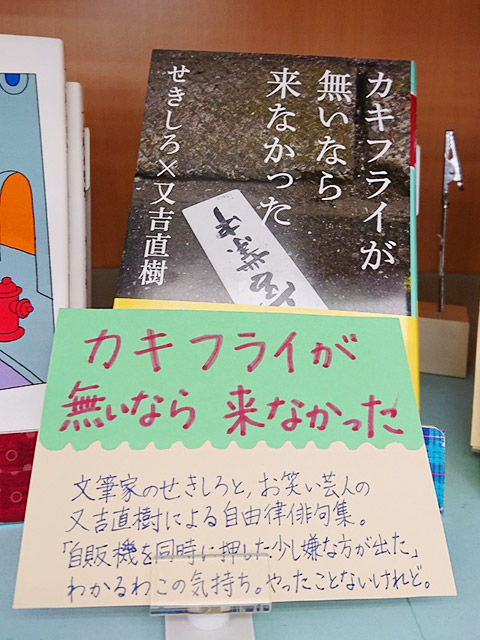 カキフライが
無いなら
来なかった
せきしろ×又吉直樹
カキフライが
無いなら 来なかった
文筆家のせきしろと、お笑い芸人の
又吉直樹による自由律俳句集。
「自販機を同時に押した少し嫌な方が出た」
わかるわこの気持ち。やったことないけれど。